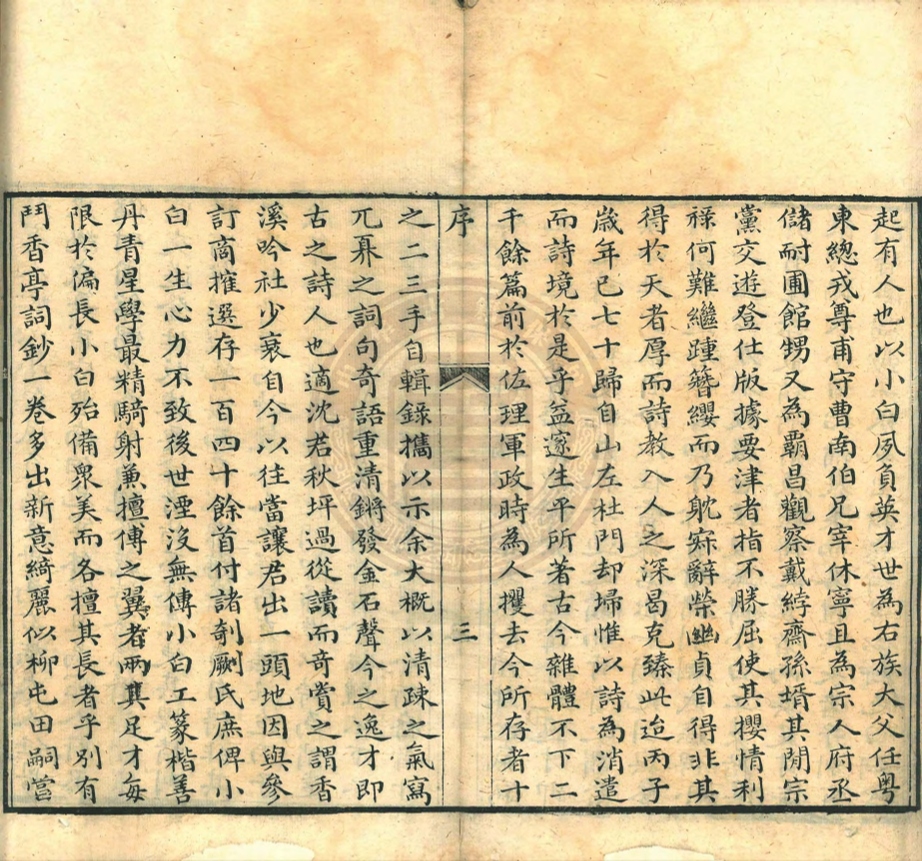 起有人也以小白夙負英才世為右族大父任粵
東總戎尊甫守曹南伯兄宰休寧且為宗人府丞
儲耐圃館甥又為霸昌觀察戴綍齋孫壻其閒宗
黨交遊登仕版據要津者指不勝屈使其攖情利
祿何難繼踵簪纓而乃躭寂辭榮幽貞自得非其
得於天者厚而詩教入人之深曷克臻此迨丙子
歲年已七十歸自山左杜門却埽惟以詩為消遣
而詩境於是乎益邃生平所著古今雜體不下二
千餘篇前於佐理軍政時為人攫去今所存者十
序
三
之二三手自輯錄攜以示余大概以清疎之氣寫
兀奡之詞句奇語重清鏘發金石聲今之逸才即
古之詩人也適沈君秋坪過從讀而奇賞之謂香
溪吟社少衰自今以往當讓君出一頭地因與參
訂商搉選存一百四十餘首付諸剞劂氏庶俾小
白一生心力不致後世湮沒無傳小白工篆楷善
丹青星學最精騎射兼擅傅之翼者兩其足才每
限於偏長小白殆備眾美而各擅其長者乎別有
鬥香亭詞鈔一卷多出新意綺麗似柳屯田嗣當